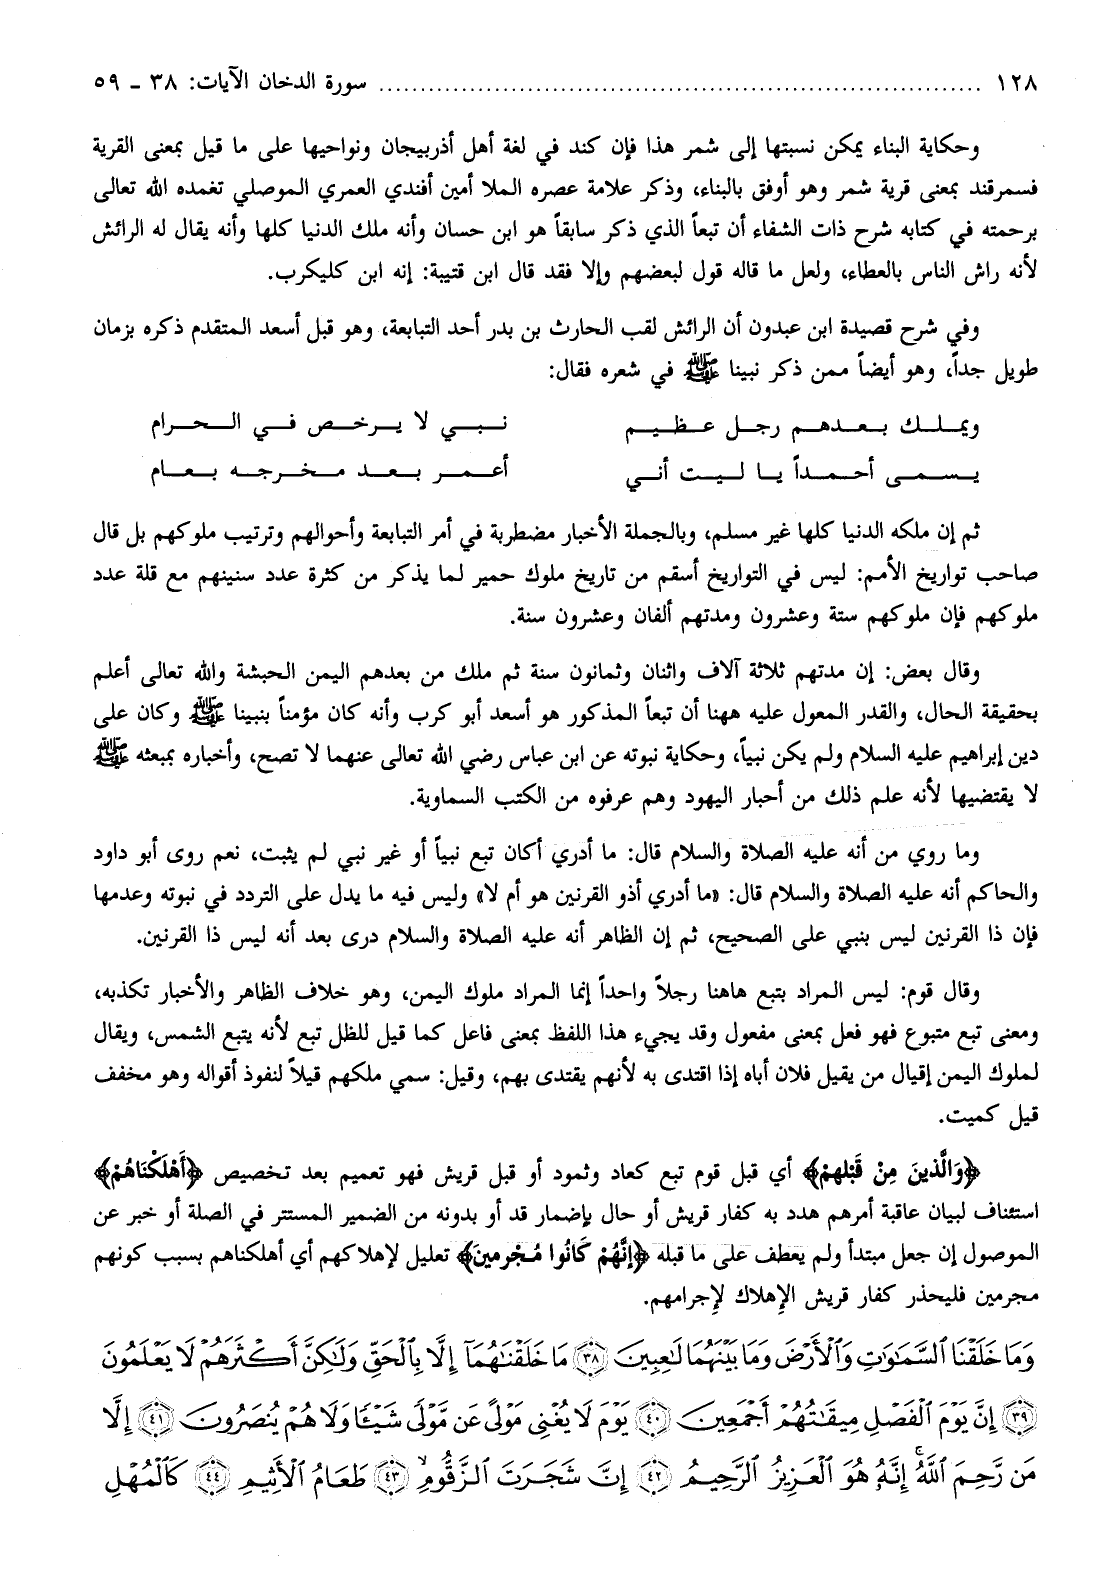 ١٢٨ ........................................................................ سورة الدخان الآيات: ٣٨ ـ ٥٩
وحكاية البناء يمكن نسبتها إلى شمر هذا فإن كند في لغة أهل أذربيجان ونواحيها على ما قيل بمعنى القرية
فسمرقند بمعنى قرية شمر وهو أوفق بالبناء، وذكر علامة عصره الملا أمين أفندي العمري الموصلي تغمده الله تعالى
برحمته في كتابه شرح ذات الشفاء أن تبعاً الذي ذكر سابقاً هو ابن حسان وأنه ملك الدنيا كلها وأنه يقال له الرائش
لأنه راش الناس بالعطاء، ولعل ما قاله قول لبعضهم وإلا فقد قال ابن قتيبة: إنه ابن كليكرب.
وفي شرح قصيدة ابن عبدون أن الرائش لقب الحارث بن بدر أحد التبابعة، وهو قبل أسعد المتقدم ذكره بزمان
طويل جداً، وهو أيضاً ممن ذكر نبينا ﷺ في شعره فقال:
ويملك بعدهم رجل عظيم نبي لا يرخص في الحرام
يسمى أحمداً يا ليت أني أعمر بعد مخرجه بعام
ثم إن ملكه الدنيا كلها غير مسلم، وبالجملة الأخبار مضطربة في أمر التبابعة وأحوالهم وترتيب ملوكهم بل قال
صاحب تواريخ الأمم: ليس في التواريخ أسقم من تاريخ ملوك حمير لما يذكر من كثرة عدد سنينهم مع قلة عدد
ملوكهم فإن ملوكهم ستة وعشرون ومدتهم ألفان وعشرون سنة.
وقال بعض: إن مدتهم ثلاثة آلاف واثنان وثمانون سنة ثم ملك من بعدهم اليمن الحبشة والله تعالى أعلم
بحقيقة الحال، والقدر المعول عليه ههنا أن تبعاً المذكور هو أسعد أبو كرب وأنه كان مؤمناً بنبينا ﷺ وكان على
دين إبراهيم عليه السلام ولم يكن نبياً، وحكاية نبوته عن ابن عباس رضي الله تعالى عنهما لا تصح، وأخباره بمبعثه ﷺ
لا يقتضيها لأنه علم ذلك من أحبار اليهود وهم عرفوه من الكتب السماوية.
وما روي من أنه عليه الصلاة والسلام قال: ما أدري أكان تبع نبياً أو غير نبي لم يثبت، نعم روى أبو داود
والحاكم أنه عليه الصلاة والسلام قال: «ما أدري أذو القرنين هو أم لا» وليس فيه ما يدل على التردد في نبوته وعدمها
فإن ذا القرنين ليس بنبي على الصحيح، ثم إن الظاهر أنه عليه الصلاة والسلام درى بعد أنه ليس ذا القرنين.
وقال قوم: ليس المراد بتبع هاهنا رجلاً واحداً إنما المراد ملوك اليمن، وهو خلاف الظاهر والأخبار تكذبه،
ومعنى تبع متبوع فهو فعل بمعنى مفعول وقد يجيء هذا اللفظ بمعنى فاعل كما قيل للظل تبع لأنه يتبع الشمس، ويقال
لملوك اليمن إقيال من يقيل فلان أباه إذا اقتدى به لأنهم يقتدى بهم، وقيل: سمي ملكهم قيلاً لنفوذ أقواله وهو مخفف
قيل كميت.
﴿وَالَّذِينَ مِنْ قَبْلِهِمْ﴾ أي قبل قوم تبع كعاد وثمود أو قبل قريش فهو تعميم بعد تخصيص ﴿أَهْلَكْنَاهُمْ﴾
استئناف لبيان عاقبة أمرهم هدد به كفار قريش أو حال بإضمار قد أو بدونه من الضمير المستتر في الصلة أو خبر عن
الموصول إن جعل مبتدأ ولم يعطف على ما قبله ﴿إِنَّهُمْ كَانُوا مُجْرِمينَ﴾ تعليل لإهلاكهم أي أهلكناهم بسبب كونهم
مجرمين فليحذر كفار قريش الإهلاك لإجرامهم.
وَمَا خَلَقْنَا ٱلسَّمَٰوَٰتِ وَٱلْأَرْضَ وَمَا بَيْنَهُمَا لَٰعِبِينَ ۝٣٨ مَا خَلَقْنَٰهُمَآ إِلَّا بِٱلْحَقِّ وَلَٰكِنَّ أَكْثَرَهُمْ لَا يَعْلَمُونَ
۝٣٩ إِنَّ يَوْمَ ٱلْفَصْلِ مِيقَٰتُهُمْ أَجْمَعِينَ ۝٤٠ يَوْمَ لَا يُغْنِى مَوْلًى عَن مَّوْلًى شَيْـًٔا وَلَا هُمْ يُنصَرُونَ ۝٤١ إِلَّا
مَن رَّحِمَ ٱللَّهُ ۚ إِنَّهُۥ هُوَ ٱلْعَزِيزُ ٱلرَّحِيمُ ۝٤٢ إِنَّ شَجَرَتَ ٱلزَّقُّومِ ۝٤٣ طَعَامُ ٱلْأَثِيمِ ۝٤٤ كَٱلْمُهْلِ